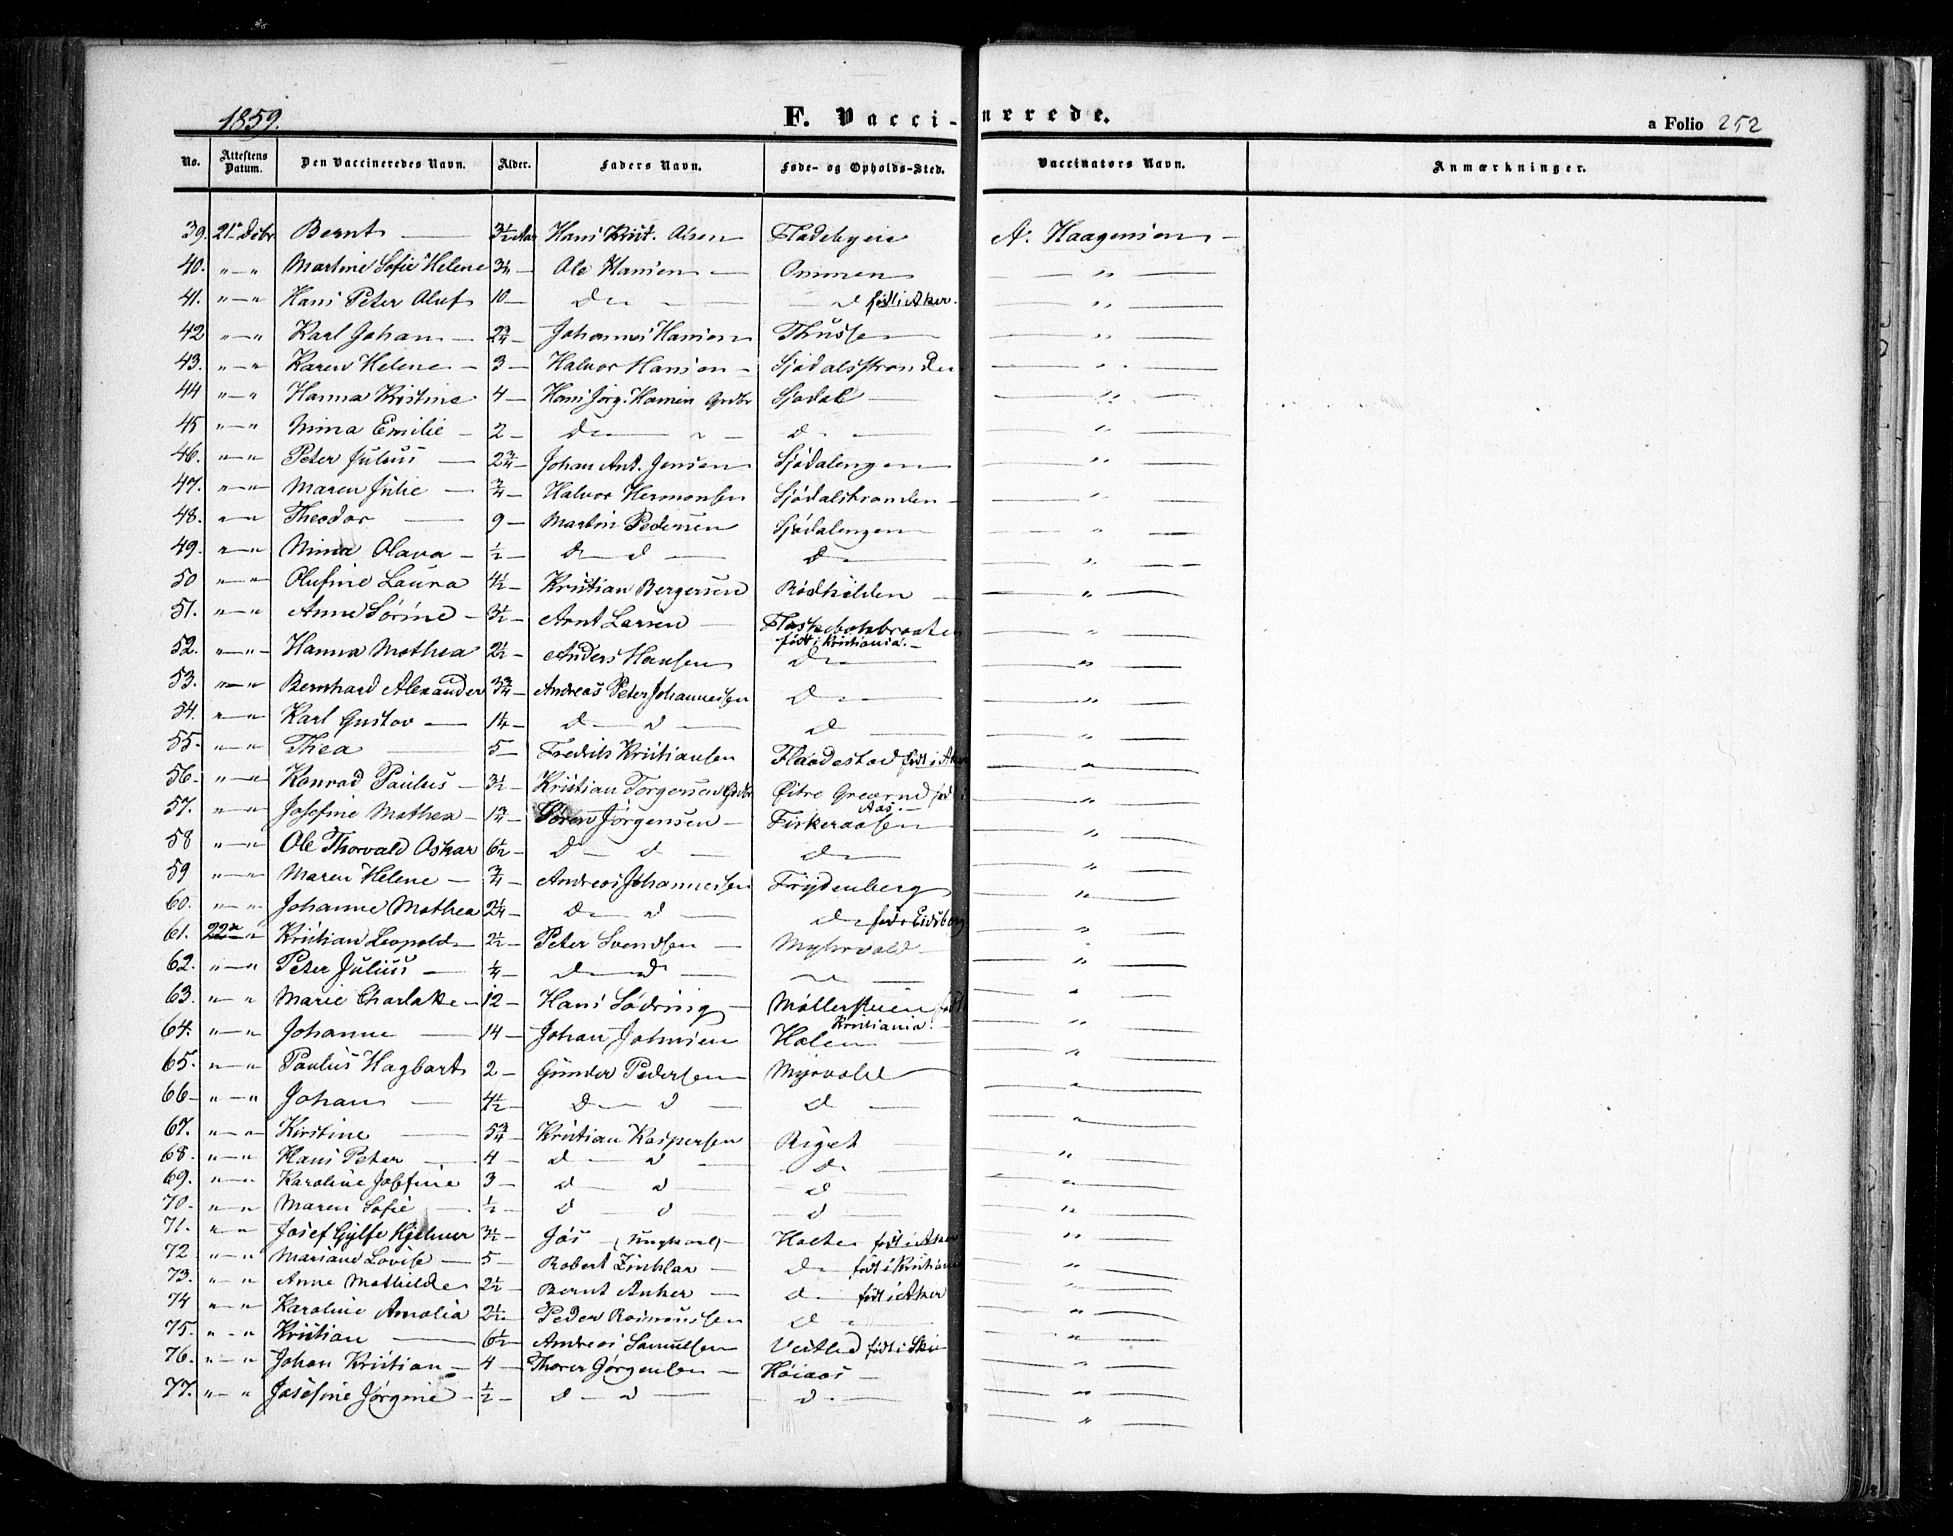 1859.
F. Vaccinerede.
a Folio 252
No. Attestens Datum. Den Vaccineredes Navn. Alder. Faders Navn. Føde- og Opholds-Sted. Vaccinators Navn. Anmærkninger.
39. 21de Debr Bernt — 3½ Aar Hans Krist. Olsen Fladebyeie A. Haagensen —
40. „ — „ Martine Sofie Helene 3¼ — Ole Hansen — Ommen „
41. „ — „ Hans Peter Oluf 10 — D — — d født i Aker. „
42 „ — „ Karl Johan — 2¾ — Johannes Hansen Thusse „
43. „ — „ Karen Helene — 3 — Halvor Hansen — Sjødalsstranden „
44 „ — „ Hanna Kristine 4 — Hans Jørg. Hansen Grdbr Sjødal — „
45 „ — „ Mina Emilie — 2 — D — „ — d — „
46. „ — „ Peter Julius — 2¾ — Johan Ant. Jensen Sjødalengen „
47. „ — „ Maren Julie — ¾ — Halvor Hermansen Sjødalstranden — „
48. „ — „ Theodor — 9 — Martin Pedersen Sjødalengen „
49. „ — „ Mina Olava — ½ — D — d — D — „
50 „ — „ Olufine Laura 4½ — Kristian Bergersen Rødhølden — „
51. „ — „ Anne Sørine — 3½ — Arnt Larsen — Flaskebækbraaten „
født i Kristiania. —
52. „ — „ Hanna Mathea 2½ — Anders Hansen D — „
53. „ — „ Bernhard Alexander 3¾ — Andreas Peter Johannesen D — „
54. „ — „ Karl Gustav — 1¼ — D — d — D — „
55. „ — „ Thea — 5 — Fredrik Kristiansen Flaadestad født i Aker „
56. „ — „ Konrad Paulus — 3½ — Kristian Torgersen Grdbr Øitre Greverud født i „
Aas. —
57. „ — „ Josefine Mathea — 1¾ — Søren Jørgensen — Fiskeraasen „
58 „ — „ Ole Thorvald Oskar 6½ — D — d — D — „
59 „ — „ Maren Helene — ¾ — Andreas Johannesen Frydenberg „
60. „ — „ Johanne Mathea 2¼ — D — d — D — født i Eidsberg „
61. 22de „ Kristian Leopold 2½ — Peter Svendsen — Myhrvold — „
62. „ — „ Peter Julius — ¼ — D — d — — „
63. „ — „ Marie Charlotte — 12 — Hans Sødring — Møllerstuen født „
Kristiania. —
64. „ — „ Johanne — 14 — Johan Johnsen Holen — „
65. „ — „ Paulus Hagbart 2 — Gunder Pedersen Myrvold — „
66 — „ — „ Johan — 4½ — D — d — d — „
67. „ — „ Kirstine — 5¾ — Kristian Kaspersen Riget — „
68. „ — „ Hans Peter — 4 — D — d — D — „
69. „ — „ Karoline Josefine 3 — D — d — d — „
70. „ — „ Maren Sofie — ½ — D — d — d — „
71. „ — „ Josef Gylfe Hjelmer 3½ — Jos — (Ungkarl) — Holte født i Aker „
72 „ — „ Mariane Lovise — 5 — Robert Zinklar — D — født i Kristiania „
73. „ — „ Anne Mathilde 2½ — Bernt Anker — D — født i Aker „
74 „ — „ Karoline Amalia 2½ — Peder Rasmussen D — „
75. „ — „ Kristian — 6½ — Andreas Samuelsen Vestlid født i Ski „
76. „ — „ Johan Kristian — 4 — Thorer Jørgensen — Høiaas — „
77. „ — „ Josefine Jørgine — ½ — D — d — D — „